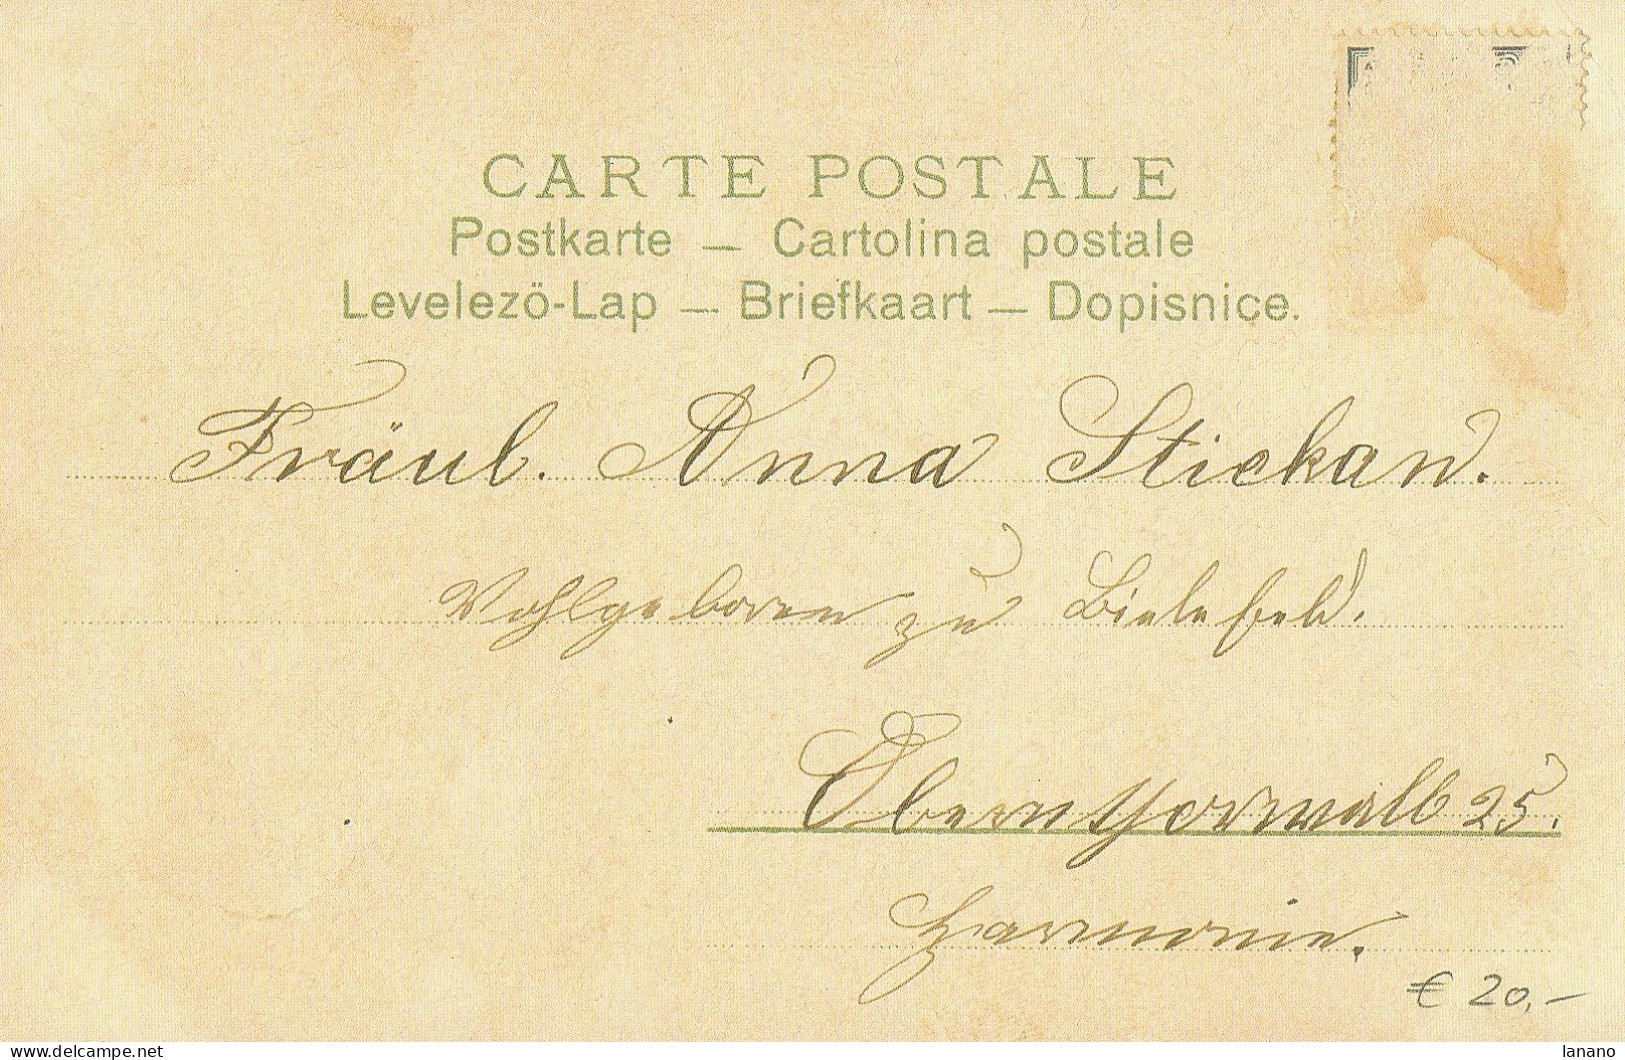 CARTE POSTALE
Postkarte — Cartolina postale
Levelezö-Lap — Briefkaart — Dopisnice.
Fräul. Anna Stickan.
Wohlgeboren zu Bielefeld.
Obernthorwall 25.
Harmonie.
€ 20,-
lanano
Delcampe.net